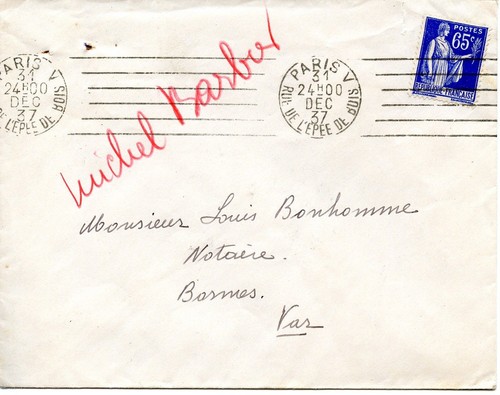 PARIS V
31
24H00
DEC
37
DE L'EPEE DE BOIS
PARIS V
31
24H00
DEC
37
RUE DE L'EPEE DE BOIS
POSTES
65c
REPUBLIQUE FRANÇAISE
Michel Barbot
Monsieur Louis Bonhomme
Notaire.
Bormes.
Var